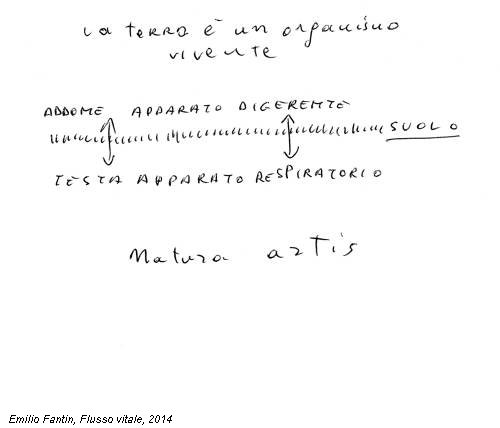 La terra è un organismo
vivente
ADDOME APPARATO DIGERENTE
SUOLO
TESTA APPARATO RESPIRATORIO
Natura artis
Emilio Fantin, Flusso vitale, 2014